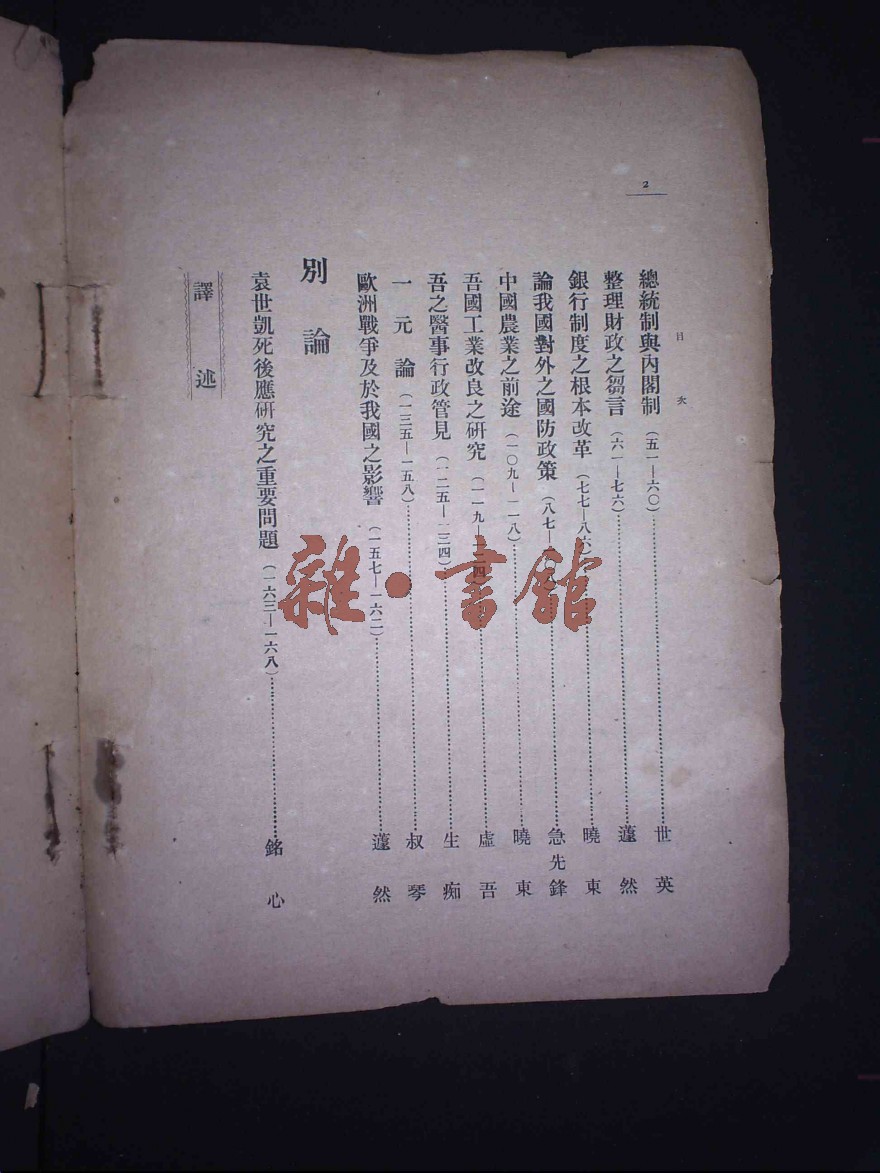 2
目次
總統制與內閣制（五一—六〇）世英
整理財政之芻言（六一—七六）蘧然
銀行制度之根本改革（七七—八六）曉東
論我國對外之國防政策（八七— 急先鋒
中國農業之前途（一〇九—一一八）曉東
吾國工業改良之研究（一一九—一二四）虛吾
吾之醫事行政管見（一二五—一三四）生痴
一元論（一三五—一五八）叔琴
歐洲戰爭及於我國之影響（一五七—一六二）蘧然
別論
袁世凱死後應研究之重要問題（一六三—一六八）銘心
譯述
雜·書館